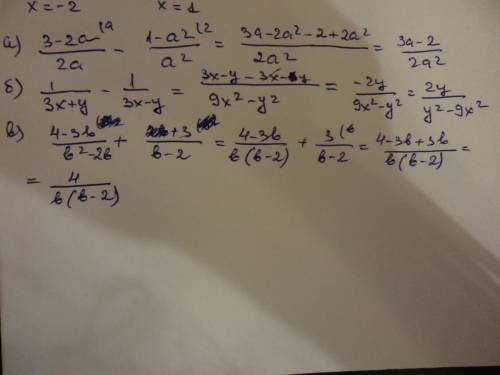 x = -2 x = 1
а) (3-2a)/(2a) ⁽ᵃ - (1-a²)/(a²) ⁽² = (3a-2a²-2+2a²)/(2a²) = (3a-2)/(2a²)
б) 1/(3x+y) - 1/(3x-y) = (3x-y-3x-y)/(9x²-y²) = (-2y)/(9x²-y²) = (2y)/(y²-9x²)
в) (4-3b)/(b²-2b) + 3/(b-2) = (4-3b)/(b(b-2)) + 3/(b-2) ⁽ᵇ = (4-3b+3b)/(b(b-2)) =
= 4/(b(b-2))